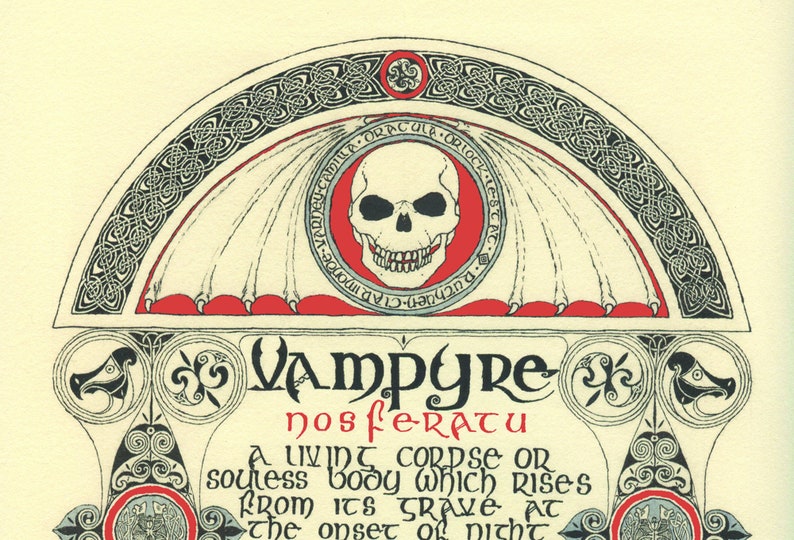 RUTHVEN · CLARIMONDE · VARNEY · CARMILLA · DRACULA · ORLOCK · LESTAT ·
VAMPYRE
NOSFERATU
A LIVING CORPSE OR
SOULESS BODY WHICH RISES
FROM ITS GRAVE AT
THE ONSET OF NIGHT